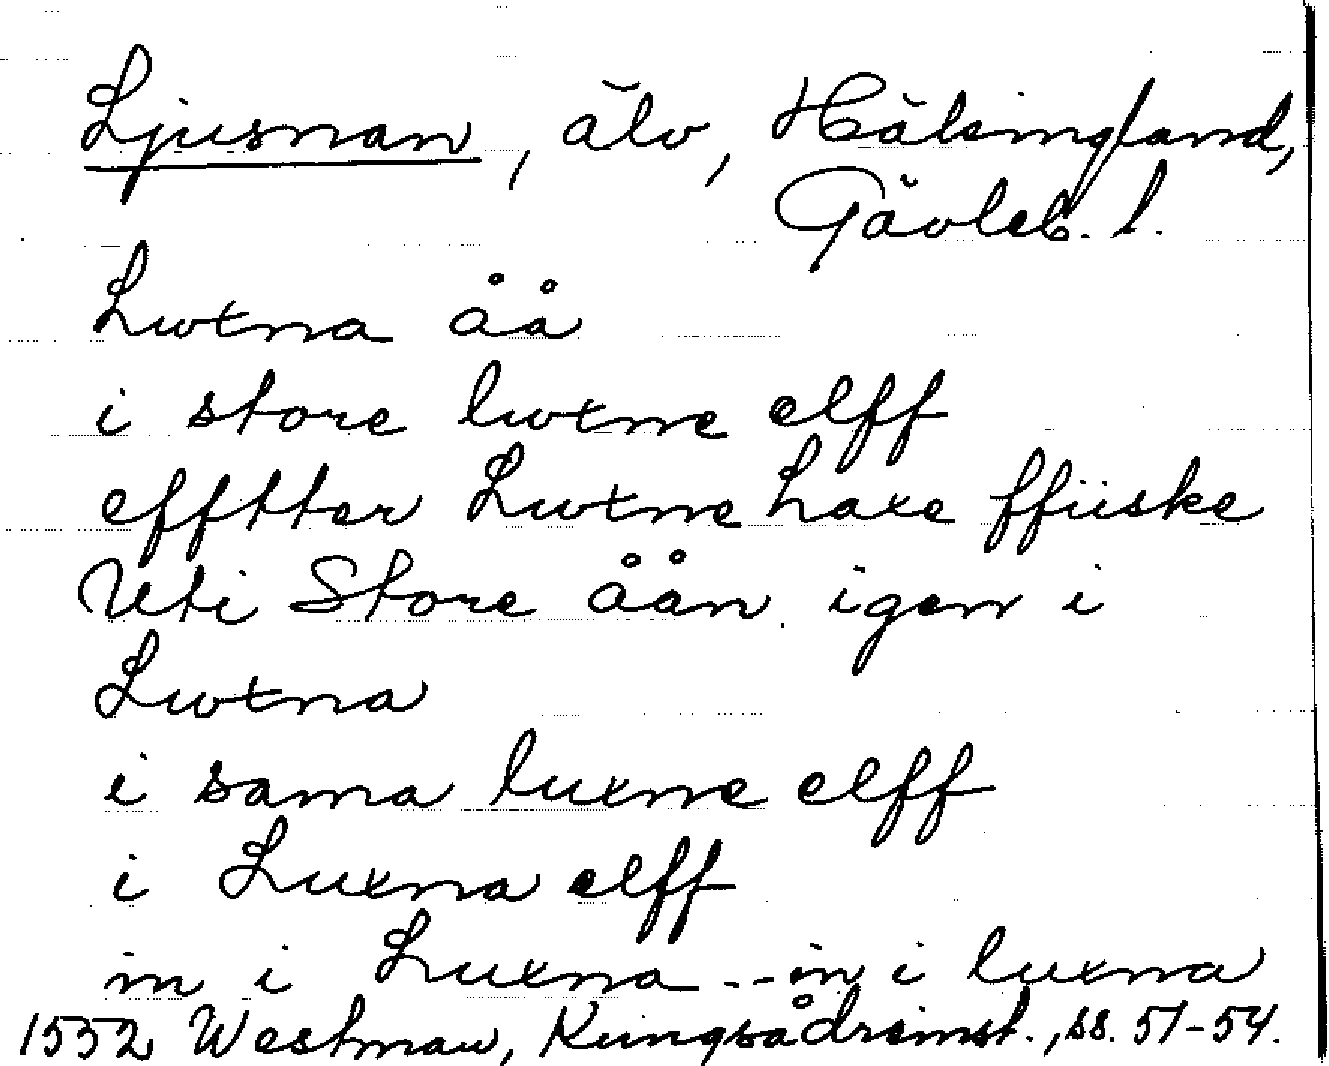 Ljusnan, älv, Hälsingland,
Gävleb. l.
Lwxna åå
i store lwxne elff
efftter Lwxne Laxe ffiiske
Uti Store åån igen i
Lwxna
i sama luxne elff
i Luxna elff
in i Luxna -- in i luxna
1552 Westman, Kungsådreinst., ss. 51-54.